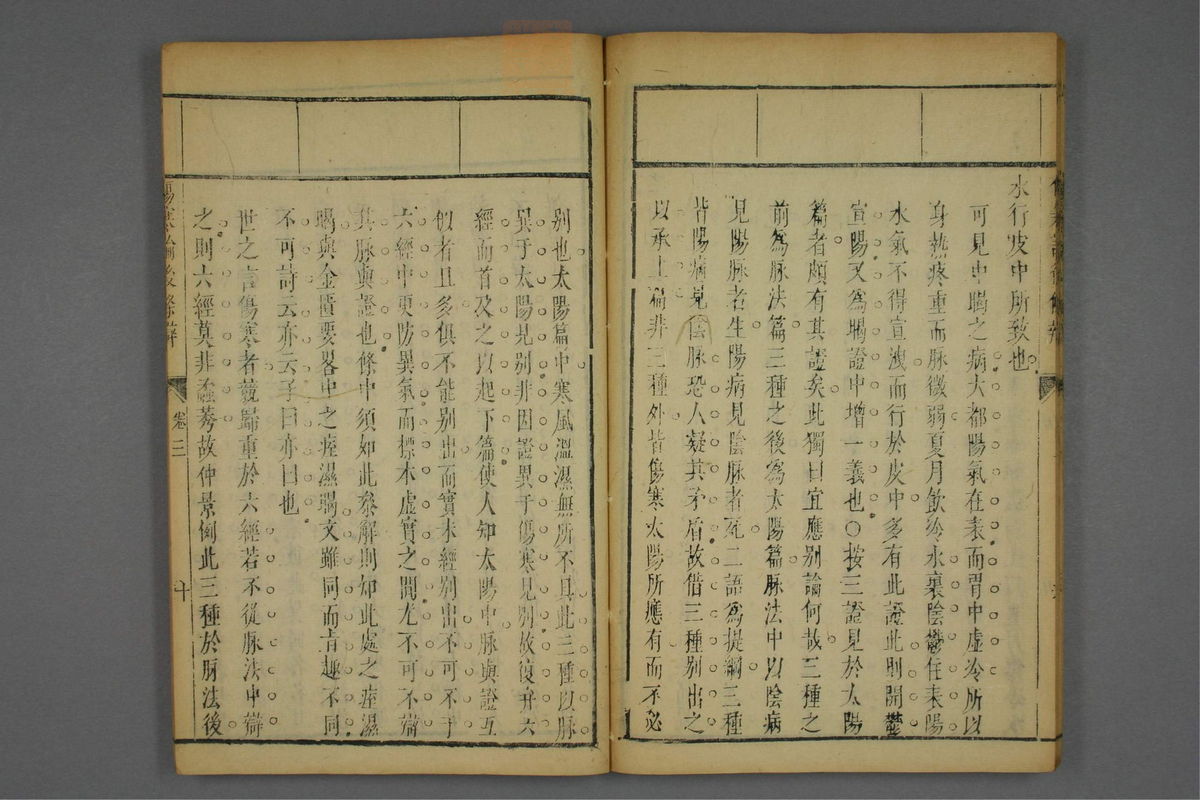 水行皮中所致也
可見中暍之病大都陽氣在表而胃中虛冷所以
身熱疼重而脈微弱夏月飲冷水裏陰鬱住表陽
水氣不得宣洩而行於皮中多有此證此則開鬱
宣陽又為暍證中增一義也○按三證見於太陽
篇者頗有其證矣此獨曰宜應別論何故三種之
前為脈法篇三種之後為太陽篇脈法中以陰病
見陽脈者生陽病見陰脈者死二語為提綱三種
皆陽病見陰脈恐人疑其矛盾故借三種別出之
以承上篇非三種外皆傷寒太陽所應有而不必
別也太陽篇中寒風溫濕無所不具此三種以脈
異于太陽見別非因證異于傷寒見別故復弁六
經而首及之以起下篇使人知太陽中脈與證互
似者且多俱不能別出而實未經別出不可不于
六經中更防異氣而標本虛實之間尤不可不辯
其脈與證也條中須如此叅解則知此處之痙濕
暍與金匱要畧中之痙濕暍文雖同而肯趣不同
不可詩云亦云子曰亦曰也
世之言傷寒者競歸重於六經若不從脈法中辯
之則六經莫非盉莠故仲景例此三種於脈法後
傷寒論後條辯
卷三
十